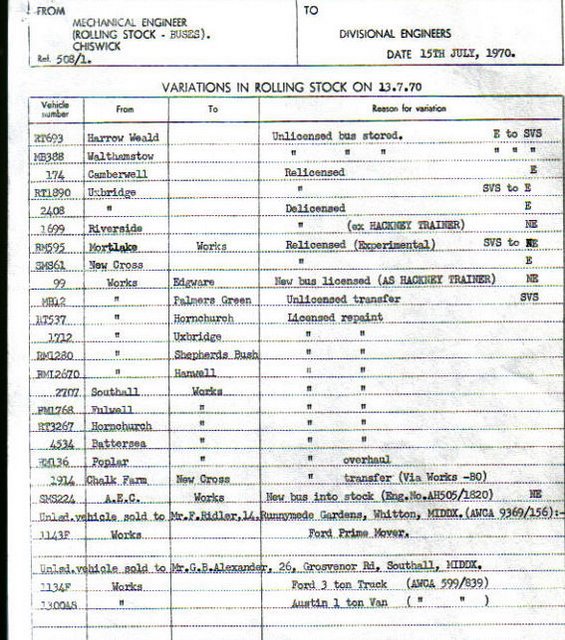 FROM
TO
MECHANICAL ENGINEER
(ROLLING STOCK - BUSES).
CHISWICK
DIVISIONAL ENGINEERS
Ref. 508/1.
DATE 15TH JULY, 1970.
VARIATIONS IN ROLLING STOCK ON 13.7.70
Vehicle number From To Reason for variation
RT693 Harrow Weald Unlicensed bus stored. E to SVS
MB388 Walthamstow " " " " " "
174 Camberwell Relicensed E
RT1890 Uxbridge " SVS to E
2408 " Delicensed E
1699 Riverside " (ex HACKNEY TRAINER) NE
RM595 Mortlake Works Relicensed (Experimental) SVS to NE
SMS61 New Cross " E
99 Works Edgware New bus licensed (AS HACKNEY TRAINER) NE
MB12 " Palmers Green Unlicensed transfer SVS
RT537 " Hornchurch Licensed repaint
1712 " Uxbridge " "
RM1280 " Shepherds Bush " "
RML2670 " Hanwell " "
2707 Southall Works " "
RM1768 Fulwell " " "
RT3267 Hornchurch " " "
4534 Battersea " " "
RM136 Poplar " " overhaul
1914 Chalk Farm New Cross " transfer (Via Works -BO)
SMS224 A.E.C. Works New bus into stock (Eng.No.AH505/1820) NE
Unlsd.vehicle sold to Mr.F.Ridler,14.Runnymede Gardens, Whitton, MIDDX.(AWCA 9369/156):-
1143F Works Ford Prime Mover.
Unlsd.vehicle sold to Mr.G.B.Alexander, 26, Grosvenor Rd. Southall, MIDDX.
1134F Works Ford 3 ton Truck (AWCA 599/839)
1300AS " Austin 1 ton Van ( " " )